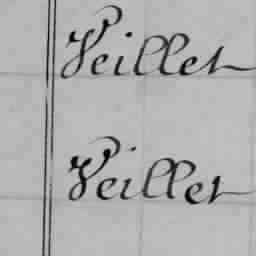 Veillet
Veillet